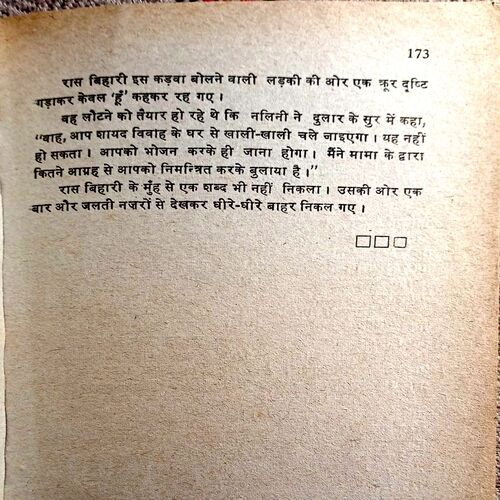 173
रास बिहारी इस कड़वा बोलने वाली लड़की की ओर एक क्रूर दृष्टि
गड़ाकर केवल 'हूँ' कहकर रह गए ।
वह लौटने को तैयार हो रहे थे कि नलिनी ने दुलार के सुर में कहा,
"वाह, आप शायद विवाह के घर से खाली-खाली चले जाइएगा । यह नहीं
हो सकता । आपको भोजन करके ही जाना होगा । मैंने मामा के द्वारा
कितने आग्रह से आपको निमन्त्रित करके बुलाया है ।"
रास बिहारी के मुँह से एक शब्द भी नहीं निकला । उसकी ओर एक
बार और जलती नज़रों से देखकर धीरे-धीरे बाहर निकल गए ।